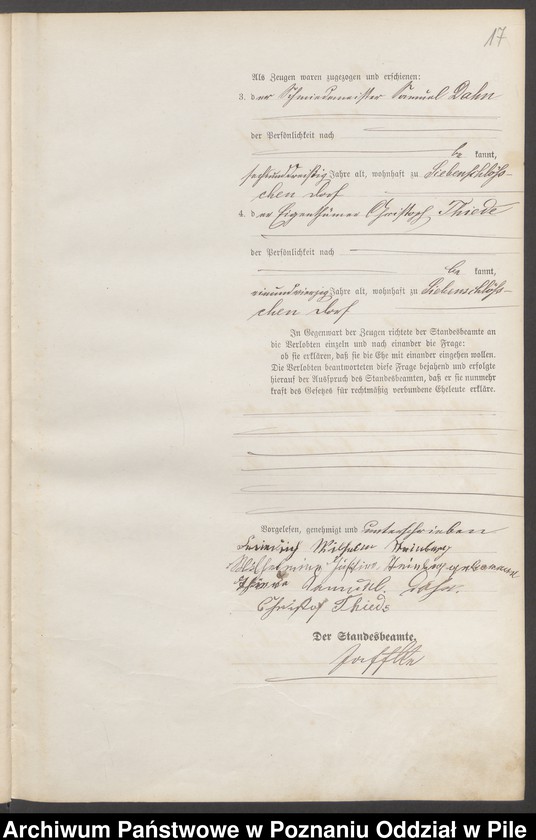 17
Als Zeugen waren zugezogen und erschienen:
3. der Schmiedemeister Samuel Dahn
der Persönlichkeit nach
be kannt,
sechsunddreißig Jahre alt, wohnhaft zu Liebenschlöß-
chen Dorf
4. der Eigenthümer Christoph Thiede
der Persönlichkeit nach
be kannt,
einundvierzig Jahre alt, wohnhaft zu Liebenschlöß-
chen Dorf
In Gegenwart der Zeugen richtete der Standesbeamte an
die Verlobten einzeln und nach einander die Frage:
ob sie erklären, daß sie die Ehe mit einander eingehen wollen.
Die Verlobten beantworteten diese Frage bejahend und erfolgte
hierauf der Ausspruch des Standesbeamten, daß er sie nunmehr
kraft des Gesetzes für rechtmäßig verbundene Eheleute erkläre.
Vorgelesen, genehmigt und unterschrieben
Friedrich Wilhelm Steinberg
Wilhelmine Justine Steinberg geborene
Samuel. Dahn.
Christof Thiede
Der Standesbeamte.
Archiwum Państwowe w Poznaniu Oddział w Pile